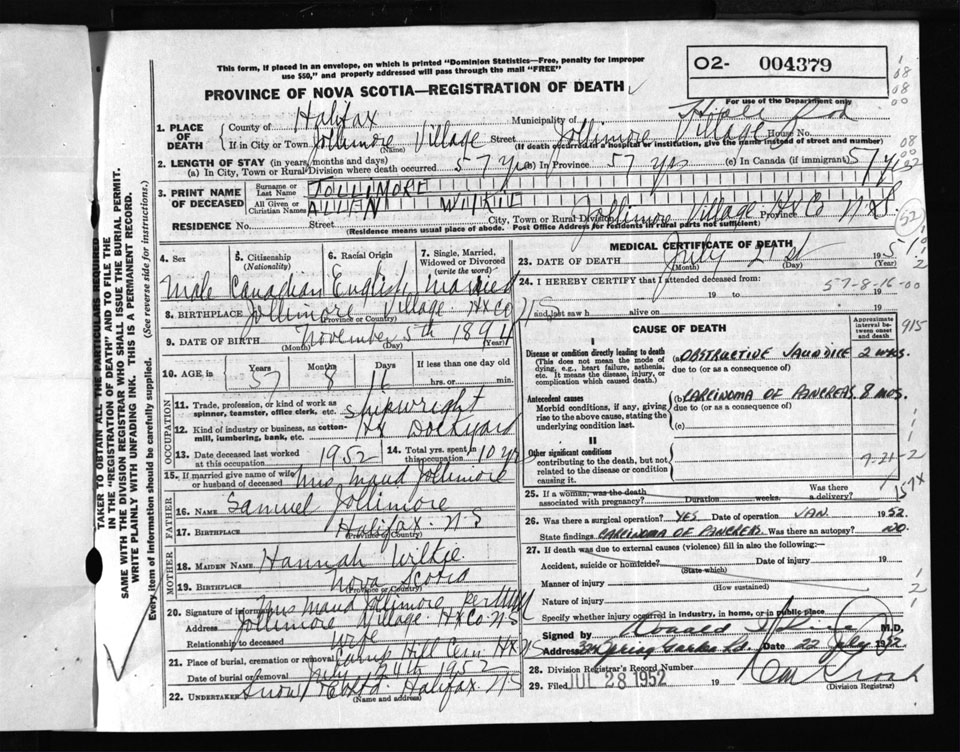 This form, if placed in an envelope, on which is printed "Dominion Statistics—Free, penalty for improper
use $50," and properly addressed will pass through the mail "FREE"
O2- 004379
For use of the Department only
PROVINCE OF NOVA SCOTIA—REGISTRATION OF DEATH
1. PLACE OF DEATH County of Halifax Municipality of
If in City or Town Jollimore Village Street Jollimore Village House No.
(Name) (If death occurred in a hospital or institution, give the name instead of street and number)
2. LENGTH OF STAY (in years, months and days)
(a) In City, Town or Rural Division where death occurred 57 yrs (b) In Province 57 yrs (c) In Canada (if immigrant) 57 yrs
3. PRINT NAME OF DECEASED Surname or Last Name JOLLIMORE
All Given or Christian Names ALLEN WILKIE
RESIDENCE No. Street City, Town or Rural Division Jollimore Village Hx Co Province N.S.
(Residence means usual place of abode. Post Office Address for residents in rural parts not sufficient)
4. Sex 5. Citizenship (Nationality) 6. Racial Origin 7. Single, Married, Widowed or Divorced (write the word)
Male Canadian English Married
8. BIRTHPLACE Jollimore Village Hx Co N S
(Province or Country)
9. DATE OF BIRTH November 5th 1894
(Month) (Day) (Year)
10. AGE in Years Months Days If less than one day old
57 8 16 hrs. or min.
OCCUPATION
11. Trade, profession, or kind of work as spinner, teamster, office clerk, etc. Shipwright
12. Kind of industry or business, as cotton-mill, lumbering, bank, etc. Hx Dockyard
13. Date deceased last worked at this occupation 1952 14. Total yrs. spent in this occupation 10 yrs
15. If married give name of wife or husband of deceased Mrs Maud Jollimore
FATHER
16. NAME Samuel Jollimore
17. BIRTHPLACE Halifax N-S
(Province or Country)
MOTHER
18. MAIDEN NAME Hannah Wilkie
19. BIRTHPLACE Nova Scotia
(Province or Country)
20. Signature of informant Mrs Maud Jollimore
Address Jollimore Village Hx Co N-S
Relationship to deceased Wife
21. Place of burial, cremation or removal Camp Hill Cem Hx NS
Date of burial or removal July 24th 1952
22. UNDERTAKER Snow Halifax N S
(Name and address)
MEDICAL CERTIFICATE OF DEATH
23. DATE OF DEATH July 21st 195
(Month) (Day) (Year)
24. I HEREBY CERTIFY that I attended deceased from:
57-8-16-00
19 to 19
and last saw h alive on 19
CAUSE OF DEATH
Approximate interval between onset and death
I
Disease or condition directly leading to death (a) OBSTRUCTIVE JAUNDICE 2 WKS.
(This does not mean the mode of dying, e.g., heart failure, asthenia, etc. It means the disease, injury, or complication which caused death.)
due to (or as a consequence of)
Antecedent causes (b) CARCINOMA OF PANCREAS 8 MOS.
Morbid conditions, if any, giving rise to the above cause, stating the underlying condition last.
due to (or as a consequence of)
(c)
II
Other significant conditions
contributing to the death, but not related to the disease or condition causing it.
7-21-2
25. If a woman, was the death associated with pregnancy? Duration weeks. Was there a delivery?
157X
26. Was there a surgical operation? YES Date of operation JAN. 1952.
State findings CARCINOMA OF PANCREAS. Was there an autopsy? NO.
27. If death was due to external causes (violence) fill in also the following:—
Accident, suicide or homicide? Date of injury 19
(State which)
Manner of injury
(How sustained)
Nature of injury
Specify whether injury occurred in industry, in home, or in public place
Signed by M.D,
Address Spring Garden Rd. Date 22 July 1952.
28. Division Registrar's Record Number
29. Filed JUL 28 1952 19
(Division Registrar)
915
52
SAME WITH THE DIVISION REGISTRAR WHO SHALL ISSUE THE BURIAL PERMIT.
WRITE PLAINLY WITH UNFADING INK. THIS IS A PERMANENT RECORD.
TAKER TO OBTAIN ALL THE PARTICULARS REQUIRED
IN THE "REGISTRATION OF DEATH" AND TO FILE THE
Every item of information should be carefully supplied. (See reverse side for instructions.)